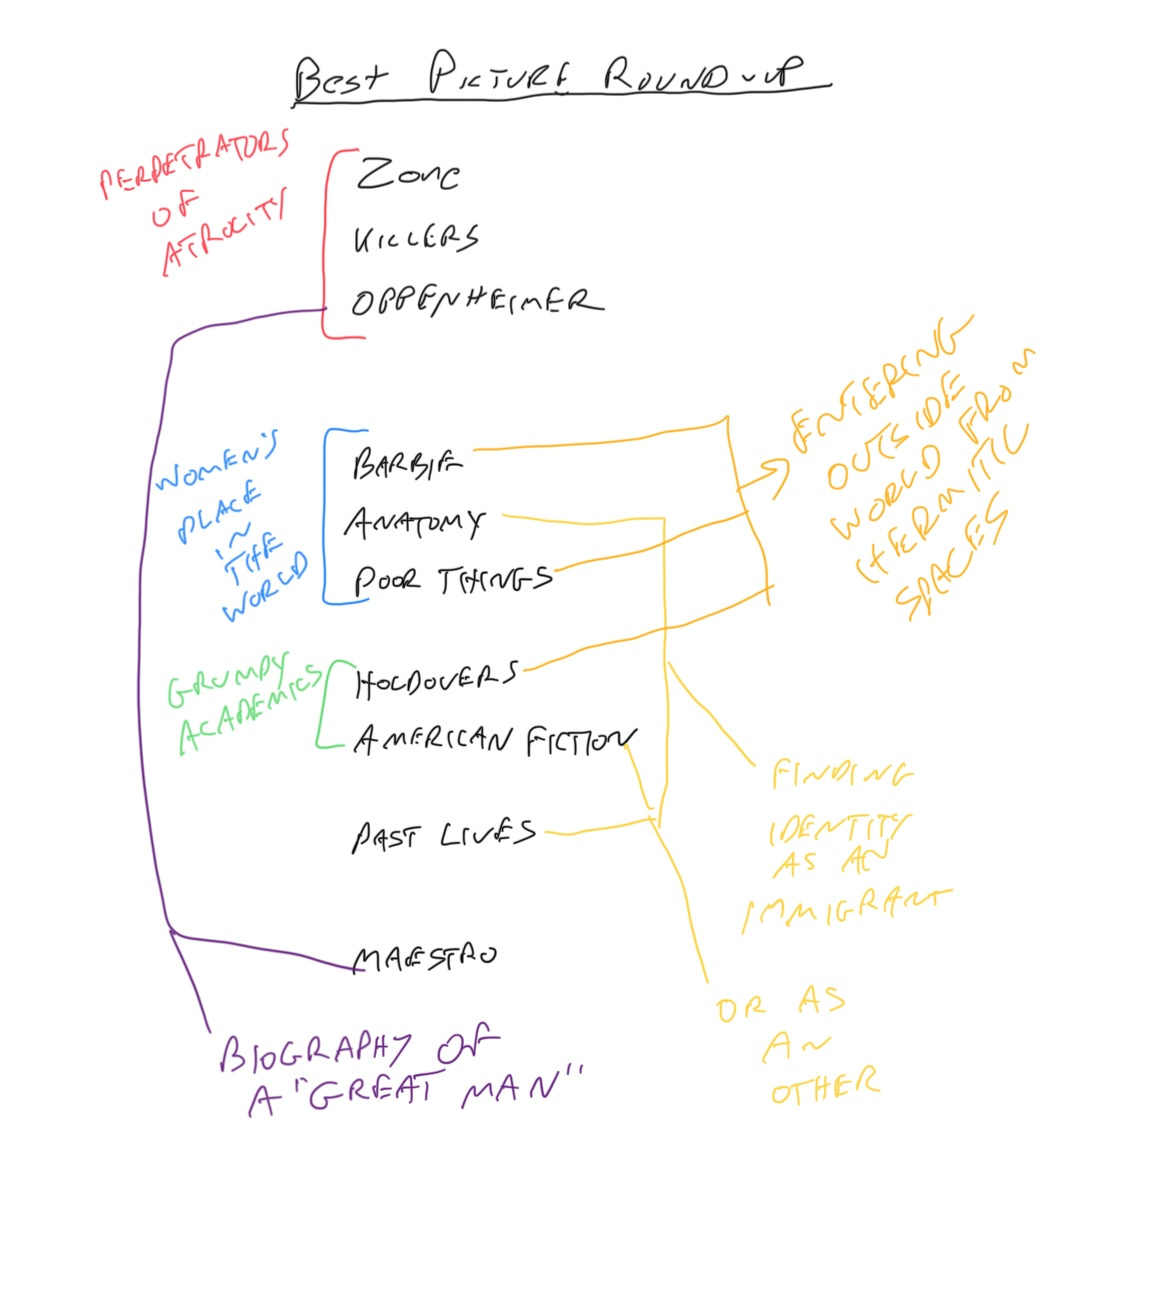 Best PICTURE ROUND-UP
PERPETRATORS
OF
ATROCITY
Zone
KILLERS
OPPENHEIMER
WOMEN'S
PLACE
IN
THE
WORLD
BARBIE
ANATOMY
POOR THINGS
ENTERING
OUTSIDE
WORLD FROM
HERMITIC
SPACES
GRUMPY
ACADEMICS
HOLDOVERS
AMERICAN FICTION
PAST LIVES
FINDING
IDENTITY
AS AN
IMMIGRANT
MAESTRO
OR AS
AN
OTHER
BIOGRAPHY OF
A "GREAT MAN"